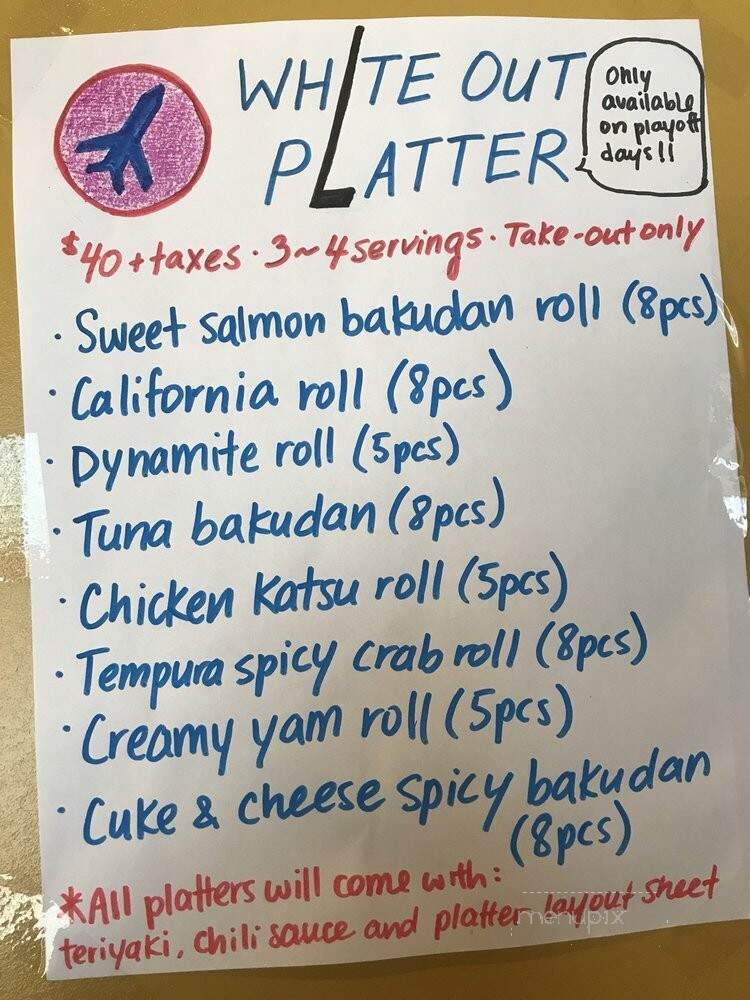 WHITE OUT
PLATTER
Only
available
on playoff
days!!
$40 + taxes · 3~4 servings · Take-out only
· Sweet salmon bakudan roll (8pcs)
· California roll (8pcs)
· Dynamite roll (5pcs)
· Tuna bakudan (8pcs)
· Chicken Katsu roll (5pcs)
· Tempura spicy crab roll (8pcs)
· Creamy yam roll (5pcs)
· Cuke & cheese spicy bakudan
(8pcs)
*All platters will come with:
teriyaki, chili sauce and platter layout sheet
menupix